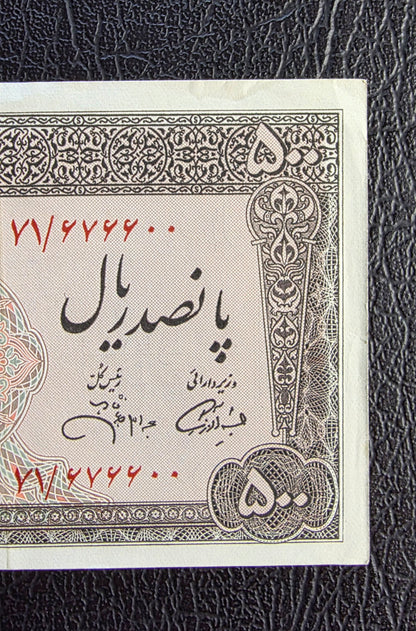 ۵۰۰
۷۱/۶۷۶۶۰۰
پانصد ریال
وزیر دارائی
رئیس کل
۷۱/۶۷۶۶۰۰
۵۰۰